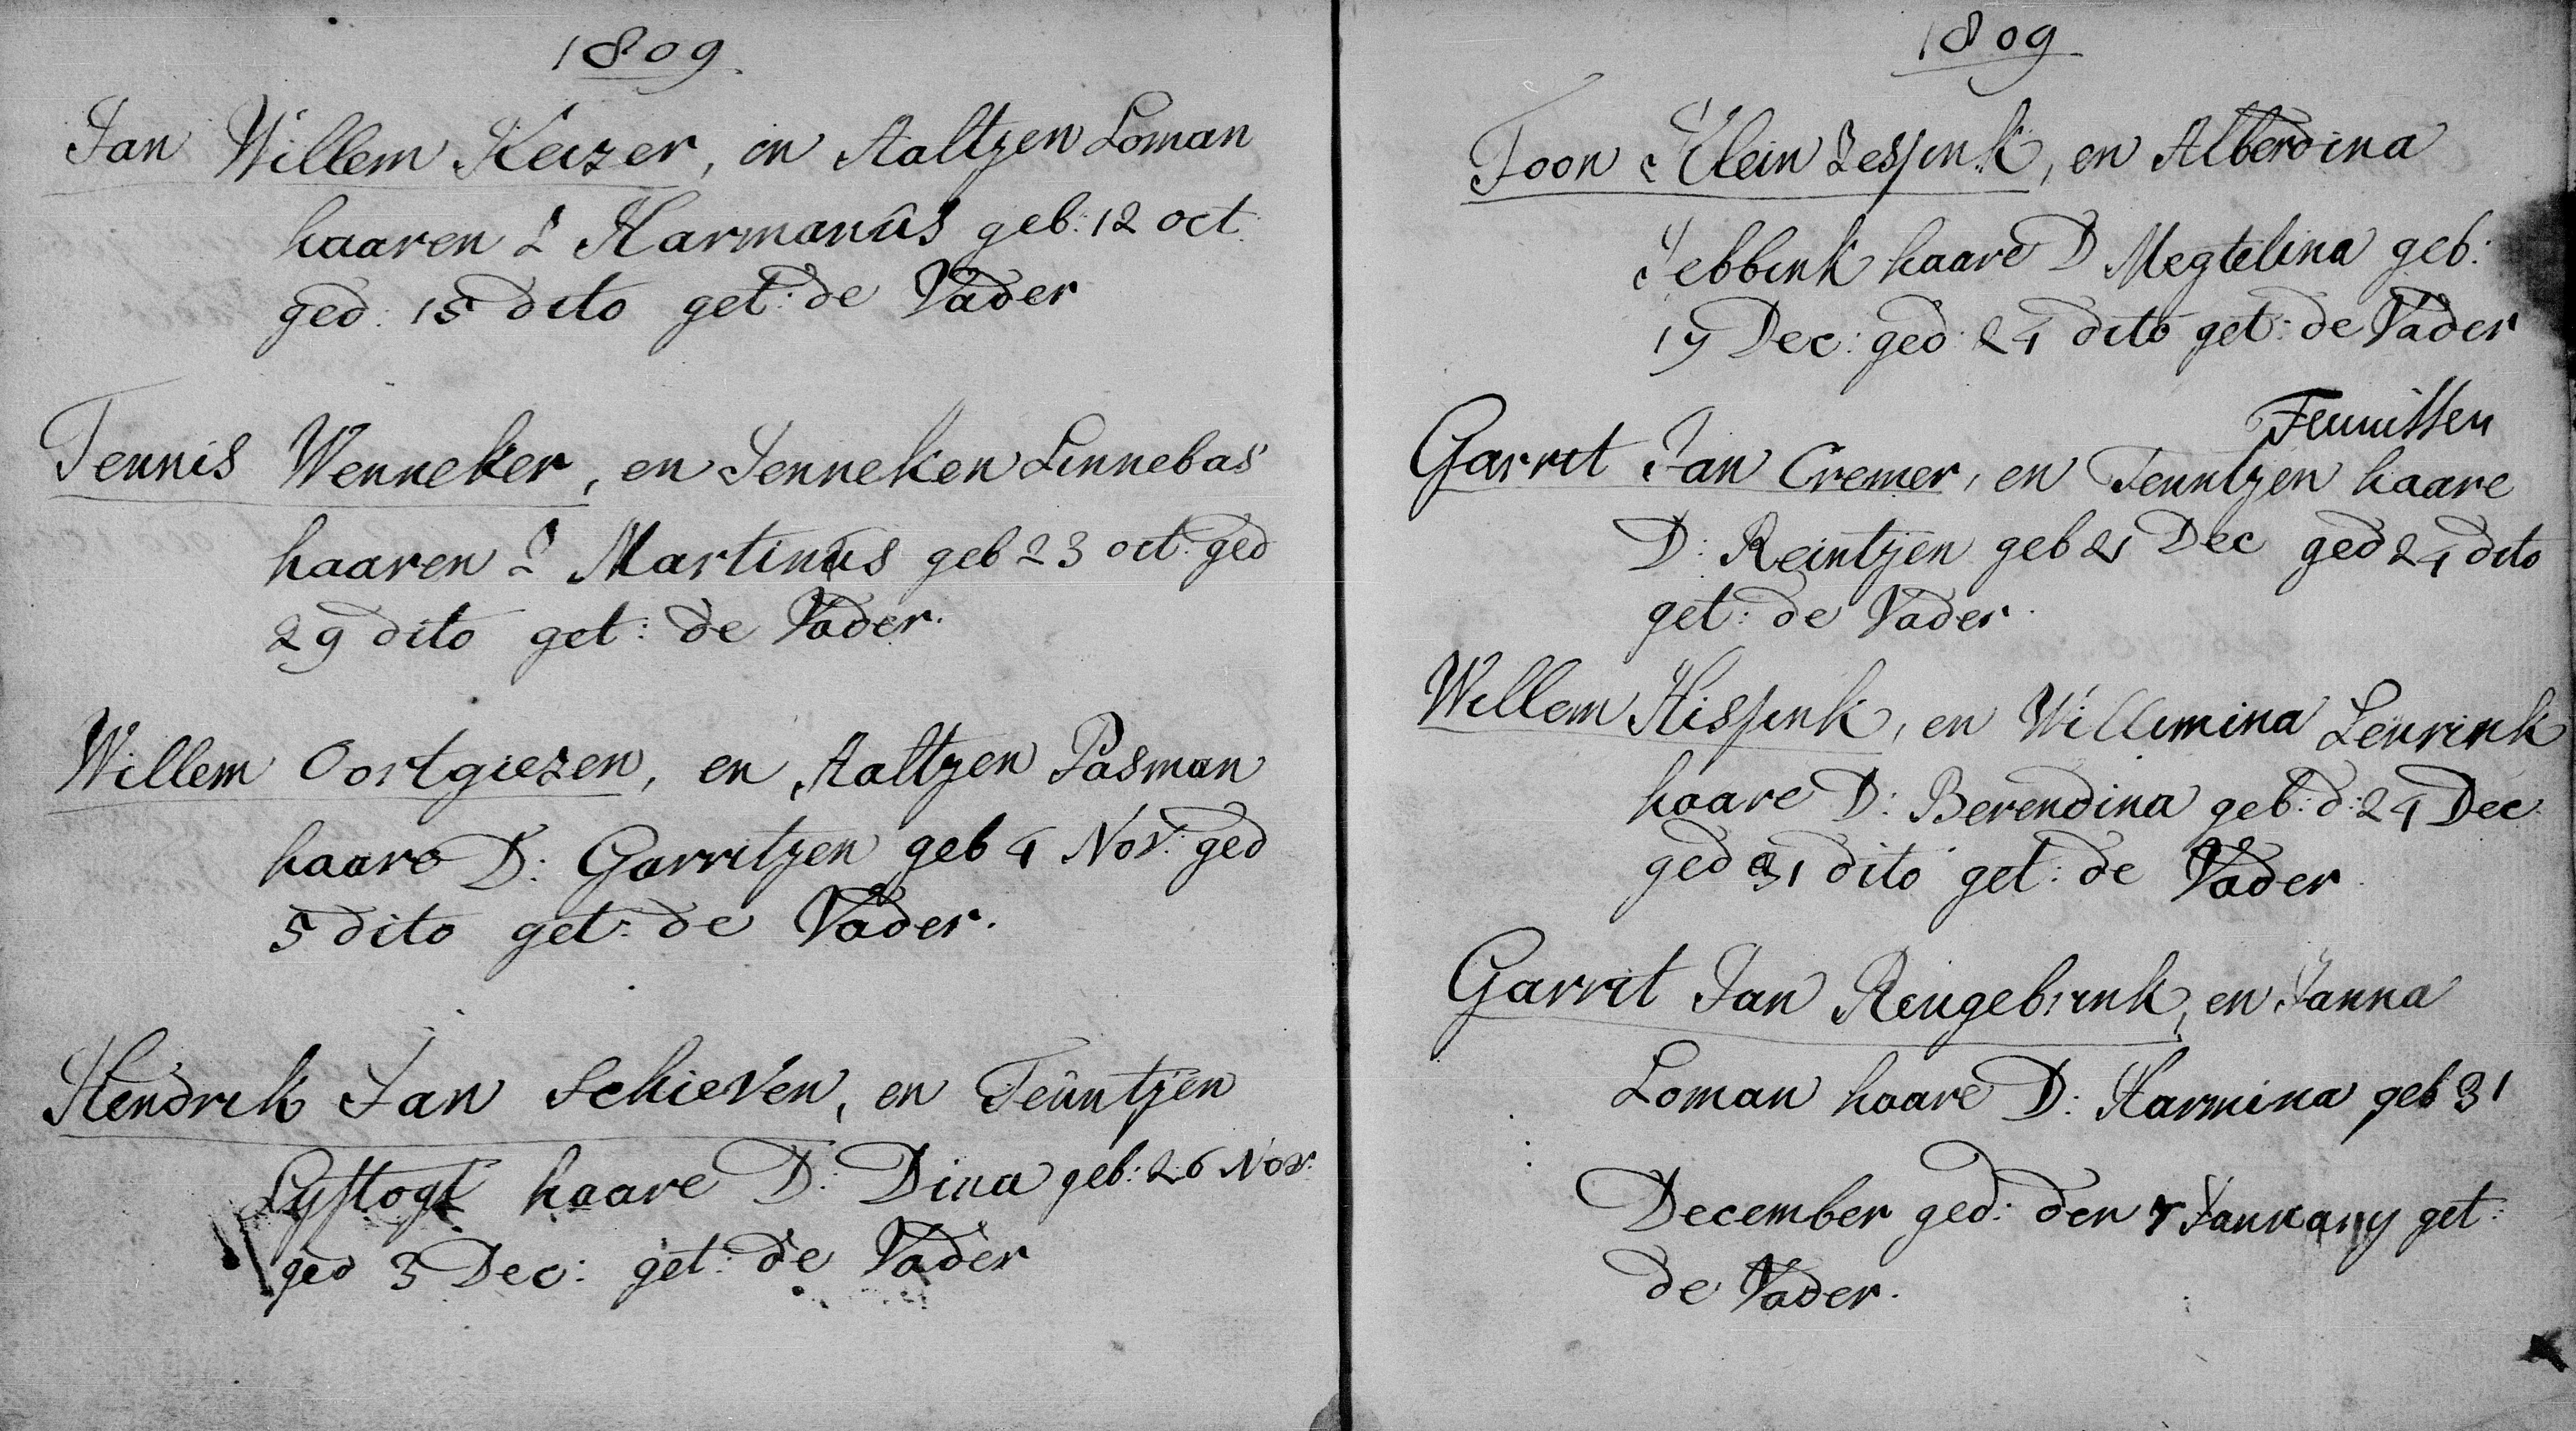 1809
Jan Willem Keizer, en Aaltjen Loman
haaren Z Harmanûs geb: 12 oct:
ged: 15 dito get: de Vader
Teunis Wenneker, en Jenneken Linnebas
haaren Z Martinus geb 23 oct: ged
29 dito get: de Vader.
Willem Oortgiezen, en Aaltjen Pasman
haare D: Garritjen geb 4 Nov: ged
5 dito get: de Vader.
Hendrik Jan Schieven, en Teûntjen
Lyftogt haare D: Dina geb: 26 Nov:
ged 3 Dec: get: de Vader
1809
Toon Klein Zessink, en Alberdina
Jebbink haare D Megtelina geb:
19 Dec: ged: 24 dito get: de Vader
Teunissen
Garrit Jan Cremer, en Teuntjen haare
D: Reintjen geb 21 Dec ged 24 dito
get: de Vader.
Willem Hissink, en Willemina Leurink
haare D: Berendina geb: d: 24 Dec
ged 31 dito get: de Vader.
Garrit Jan Reugebrink, en Janna
Loman haare D: Harmina geb 31
December ged: den 7 January get:
de Vader.